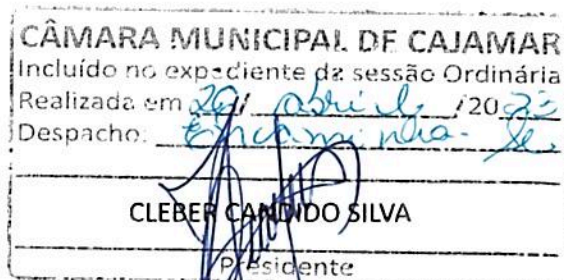 CÂMARA MUNICIPAL DE CAJAMAR
Incluído no expediente da sessão Ordinária
Realizada em 20/ abril /2023
Despacho: Encaminha-se.
CLEBER CANDIDO SILVA
Presidente